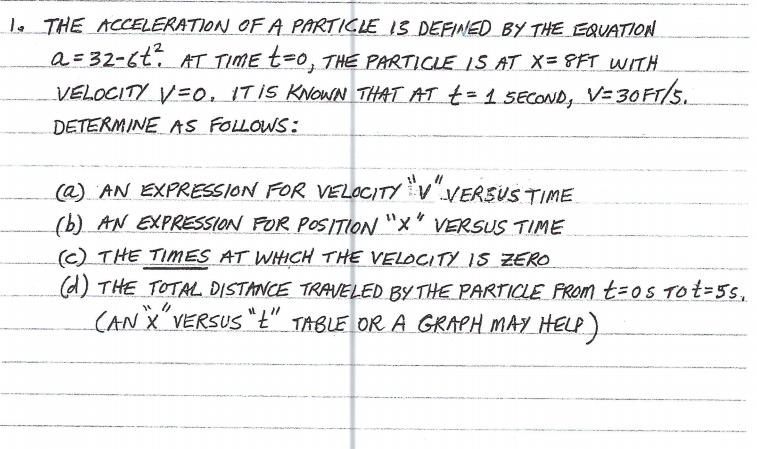 1. THE ACCELERATION OF A PARTICLE IS DEFINED BY THE EQUATION
a = 32-6t². AT TIME t=0, THE PARTICLE IS AT X= 8FT WITH
VELOCITY V=0. IT IS KNOWN THAT AT t= 1 SECOND, V=30FT/S.
DETERMINE AS FOLLOWS:
(a) AN EXPRESSION FOR VELOCITY "V" VERSUS TIME
(b) AN EXPRESSION FOR POSITION "X" VERSUS TIME
(c) THE TIMES AT WHICH THE VELOCITY IS ZERO
(d) THE TOTAL DISTANCE TRAVELED BY THE PARTICLE FROM t=0s TO t=5s.
(AN "X" VERSUS "t" TABLE OR A GRAPH MAY HELP)